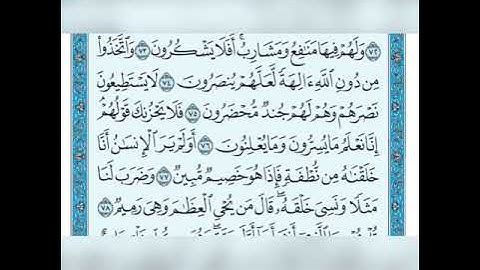 ﴿٧٢﴾ وَلَهُمْ فِيهَا مَنَافِعُ وَمَشَارِبُ ۖ أَفَلَا يَشْكُرُونَ ﴿٧٣﴾ وَاتَّخَذُوا
مِن دُونِ اللَّهِ آلِهَةً لَّعَلَّهُمْ يُنصَرُونَ ﴿٧٤﴾ لَا يَسْتَطِيعُونَ
نَصْرَهُمْ وَهُمْ لَهُمْ جُندٌ مُّحْضَرُونَ ﴿٧٥﴾ فَلَا يَحْزُنكَ قَوْلُهُمْ ۘ
إِنَّا نَعْلَمُ مَا يُسِرُّونَ وَمَا يُعْلِنُونَ ﴿٧٦﴾ أَوَلَمْ يَرَ الْإِنسَانُ أَنَّا
خَلَقْنَاهُ مِن نُّطْفَةٍ فَإِذَا هُوَ خَصِيمٌ مُّبِينٌ ﴿٧٧﴾ وَضَرَبَ لَنَا
مَثَلًا وَنَسِيَ خَلْقَهُ ۖ قَالَ مَن يُحْيِي الْعِظَامَ وَهِيَ رَمِيمٌ ﴿٧٨﴾